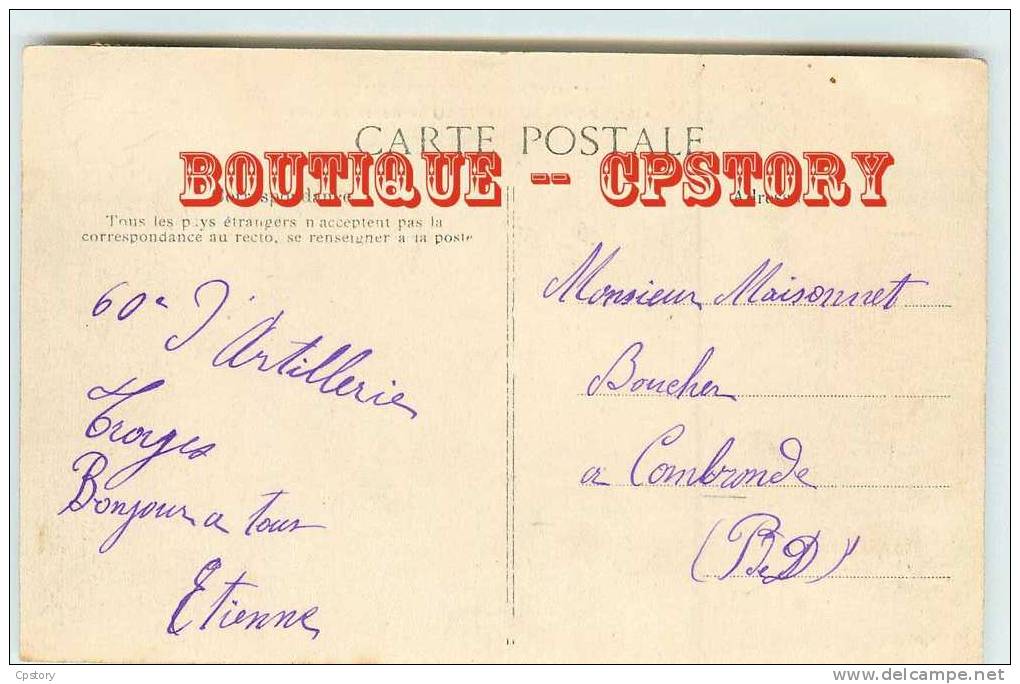 CARTE POSTALE
BOUTIQUE -- CPSTORY
Correspondance
Tous les pays étrangers n'acceptent pas la
correspondance au recto, se renseigner à la poste
60e d'Artillerie
Troyes
Bonjour a tous
Etienne
Adresse
Monsieur Maisonnet
Boucher
a Combronde
(P. de D)
Cpstory
delcampe.net